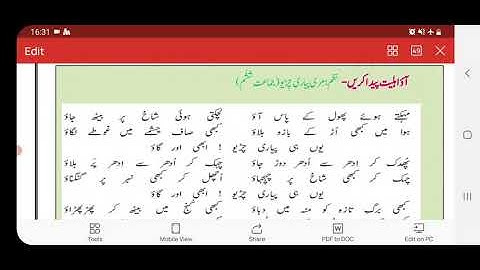 16:31
Edit
49
آؤ اہلیت پیدا کریں - نظم: مری پیاری چڑیو (جماعت ششم)
مہکتے ہوئے پھول کے پاس آؤ لچکتی ہوئی شاخ پر بیٹھ جاؤ
ہوا میں کبھی اُڑ کے بازو ہلاؤ کبھی صاف چشمے میں غوطے لگاؤ
یوں ہی پیاری چڑیو ! ابھی اور گاؤ
پھدک کر اِدھر سے اُدھر دوڑ جاؤ چمک کر اُدھر سے اِدھر پَر ہلاؤ
چمک کر کبھی شاخ پر چہچہاؤ اُچھل کر کبھی نہر پر گنگناؤ
یوں ہی پیاری چڑیو ! ابھی اور گاؤ
کبھی برگِ تازہ کو منہ میں دباؤ کبھی کنج میں بیٹھ کر پھڑپھڑاؤ
Tools
Mobile View
Share
PDF to DOC
Edit on PC